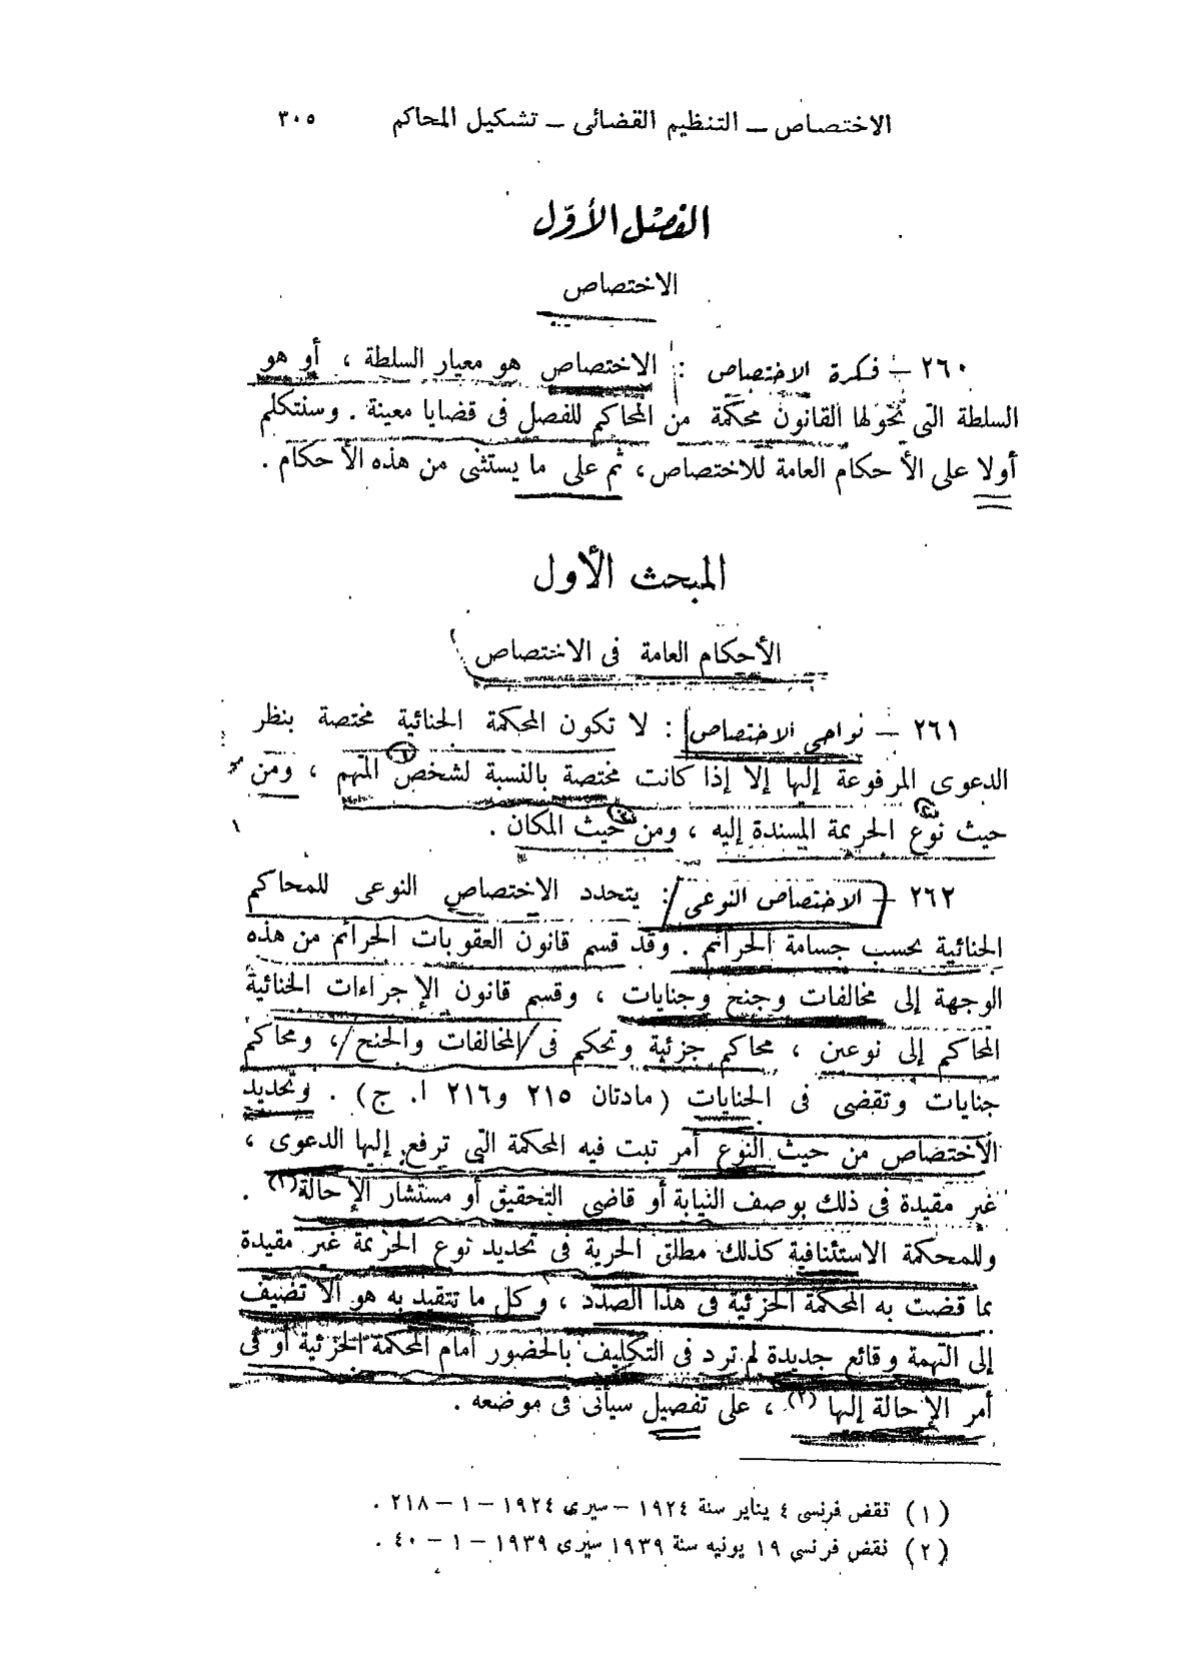 الاختصاص – التنظيم القضائى – تشكيل المحاكم ٣٠٥
الفصل الأوّل
الاختصاص
٢٦٠ – فكرة الاختصاص : الاختصاص هو معيار السلطة ، أو هو
السلطة التى يخوّلها القانون محكمة من المحاكم للفصل فى قضايا معينة . وسنتكلم
أولا على الأحكام العامة للاختصاص ، ثم على ما يستثنى من هذه الأحكام .
المبحث الأول
الأحكام العامة فى الاختصاص
٢٦١ – نواحى الاختصاص : لا تكون المحكمة الجنائية مختصة بنظر
الدعوى المرفوعة إليها إلا إذا كانت مختصة بالنسبة لشخص المتهم ، ومن
حيث نوع الجريمة المسندة إليه ، ومن حيث المكان .
٢٦٢ – الاختصاص النوعى : يتحدد الاختصاص النوعى للمحاكم
الجنائية بحسب جسامة الجرائم . وقد قسم قانون العقوبات الجرائم من هذه
الوجهة إلى مخالفات وجنح وجنايات ، وقسم قانون الإجراءات الجنائية
المحاكم إلى نوعين ، محاكم جزئية وتحكم فى المخالفات والجنح ، ومحاكم
جنايات وتقضى فى الجنايات (مادتان ٢١٥ و٢١٦ ا. ج) . وتحديد
الاختصاص من حيث النوع أمر تبت فيه المحكمة التى ترفع إليها الدعوى ،
غير مقيدة فى ذلك بوصف النيابة أو قاضى التحقيق أو مستشار الإحالة(١) .
وللمحكمة الاستئنافية كذلك مطلق الحرية فى تحديد نوع الجريمة غير مقيدة
بما قضت به المحكمة الجزئية فى هذا الصدد ، وكل ما تتقيد به هو ألا تضيف
إلى التهمة وقائع جديدة لم ترد فى التكليف بالحضور أمام المحكمة الجزئية أو فى
أمر الإحالة إليها (٢) ، على تفصيل سيأتى فى موضعه .
(١) نقض فرنسى ٤ يناير سنة ١٩٢٤ – سيرى ١٩٢٤ – ١ – ٢١٨ .
(٢) نقض فرنسى ١٩ يونيه سنة ١٩٣٩ سيرى ١٩٣٩ – ١ – ٤٠ .